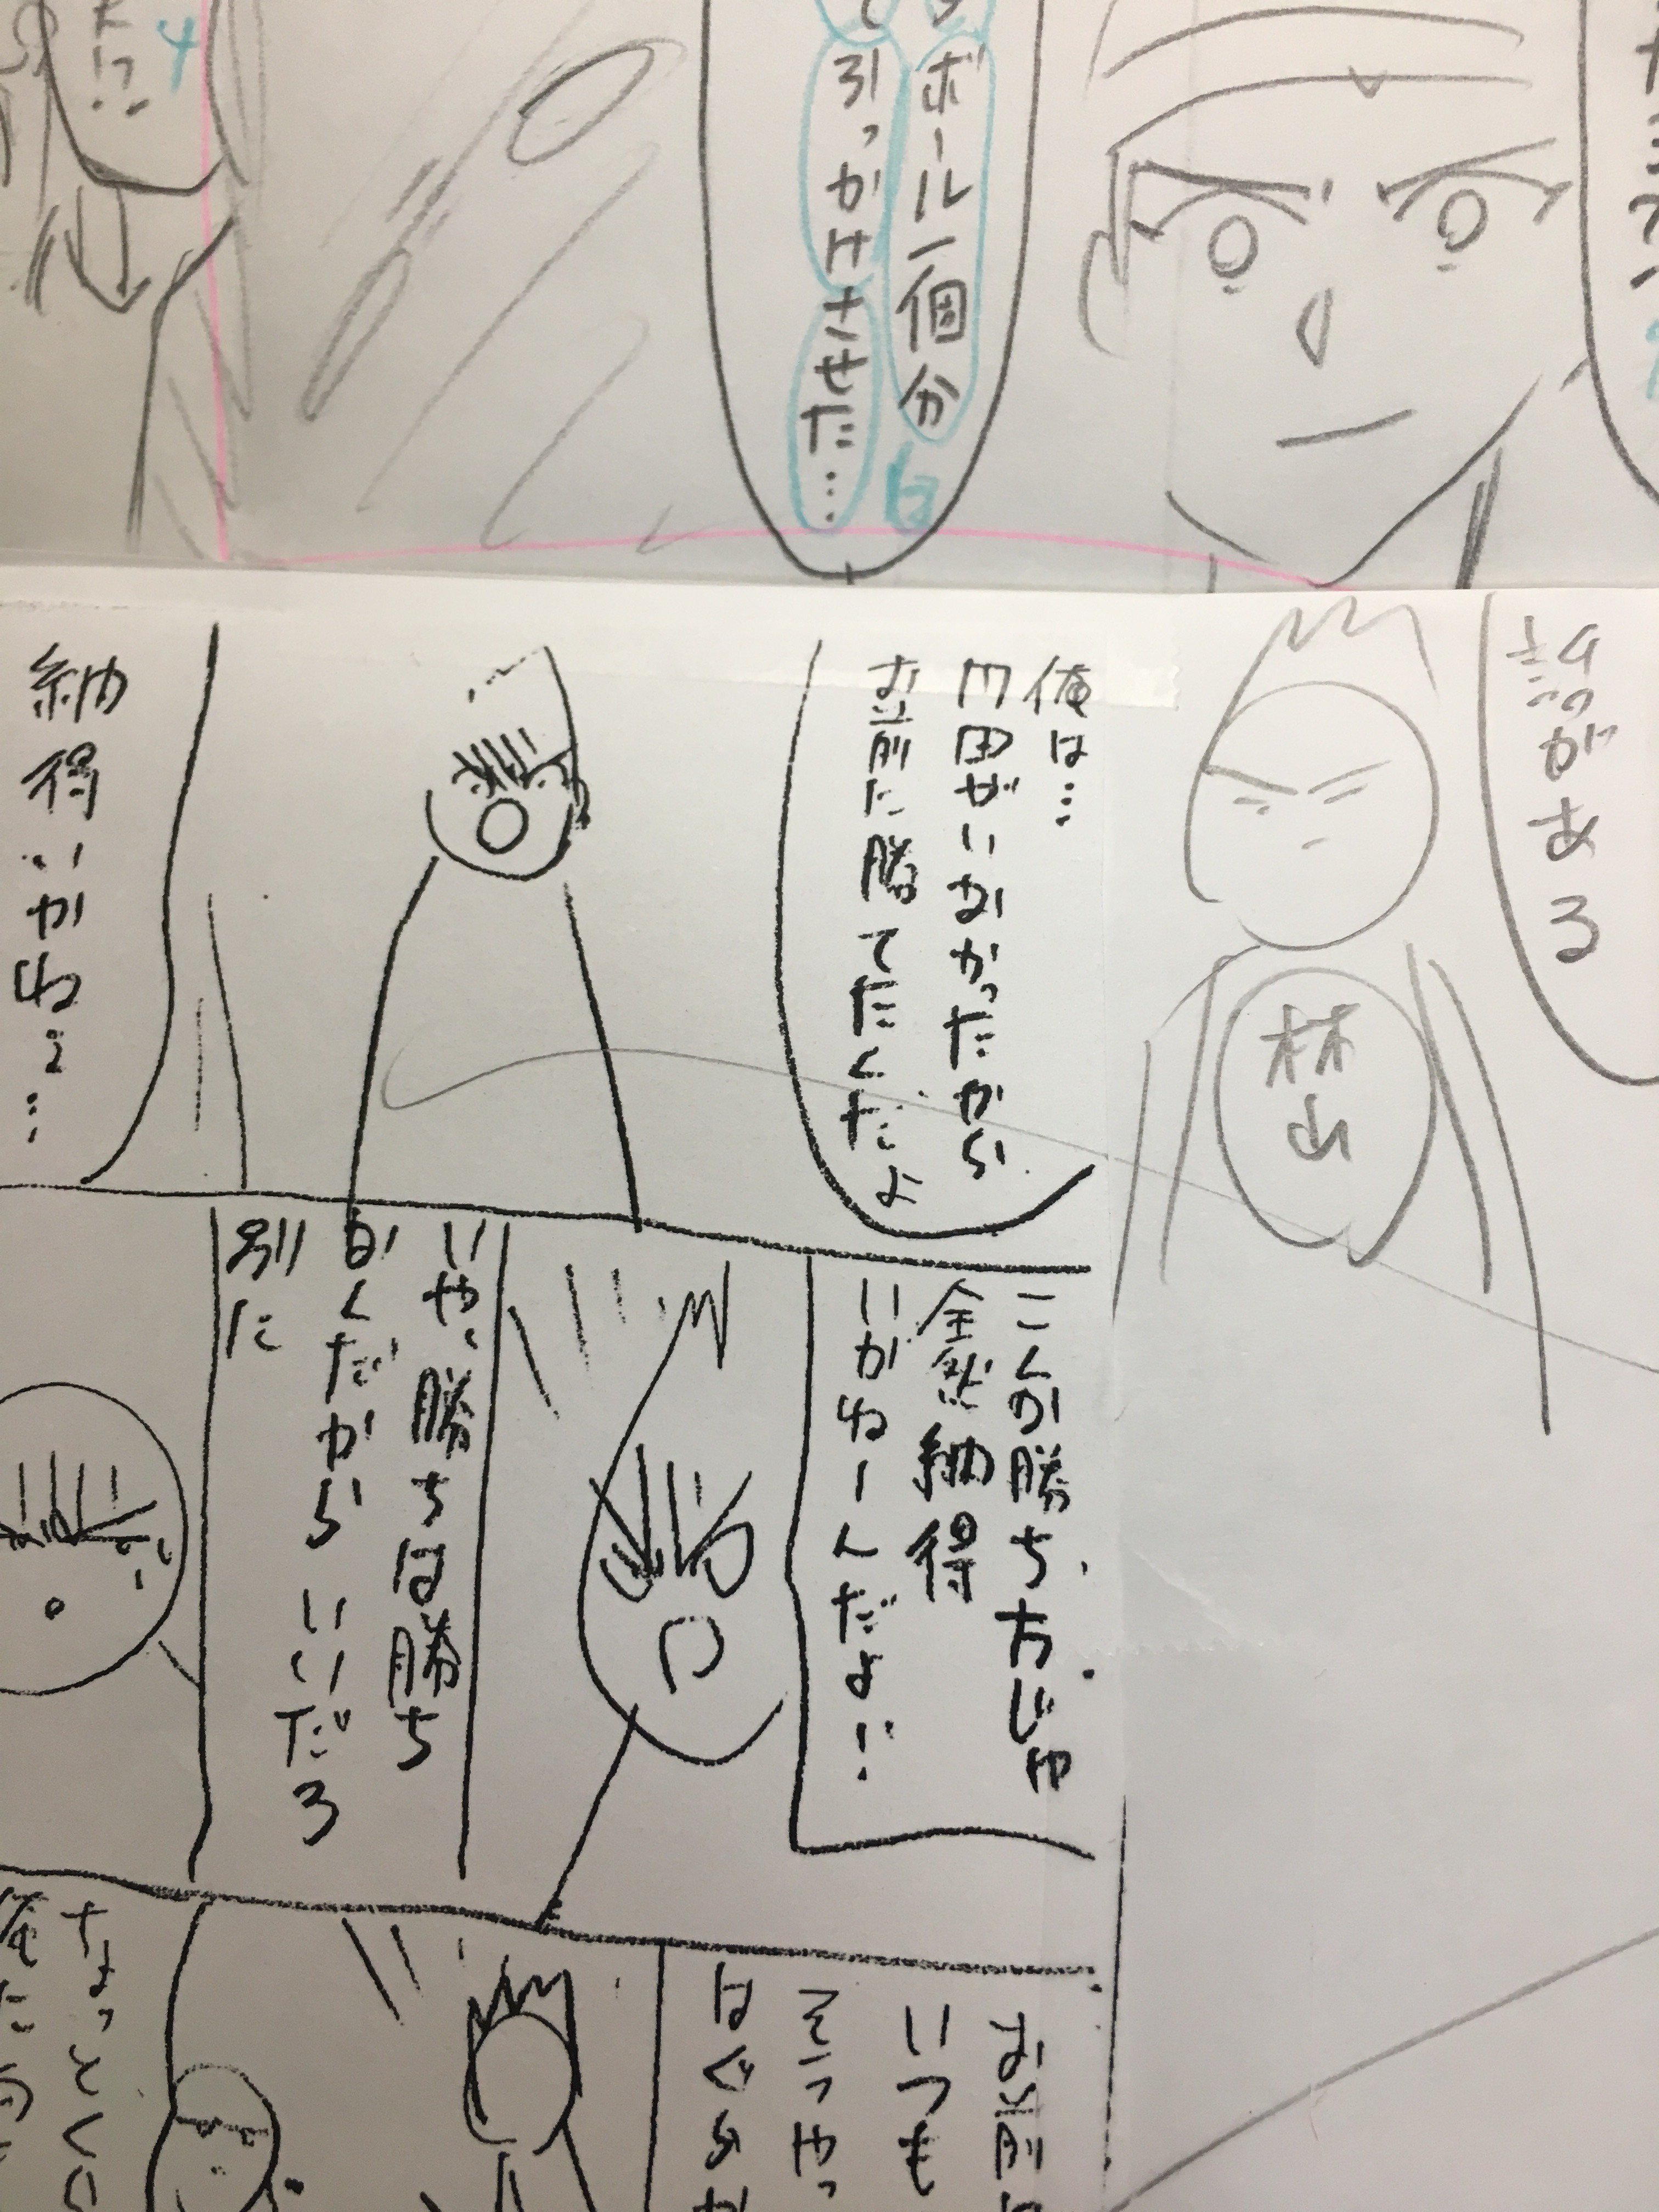 ボール一個分
引っかけさせた…
は
4
話がある
林
山
俺は…
円田がいなかったから
お前に勝てたんだよ
納得いかねェ…
こんな勝ち方じゃ
全然納得
いかねーんだよ!!
いや、勝ちは勝ち
なんだからいいだろ
別に
お前は
いつも
そうやっ
はぐらか
ちょっとくらい